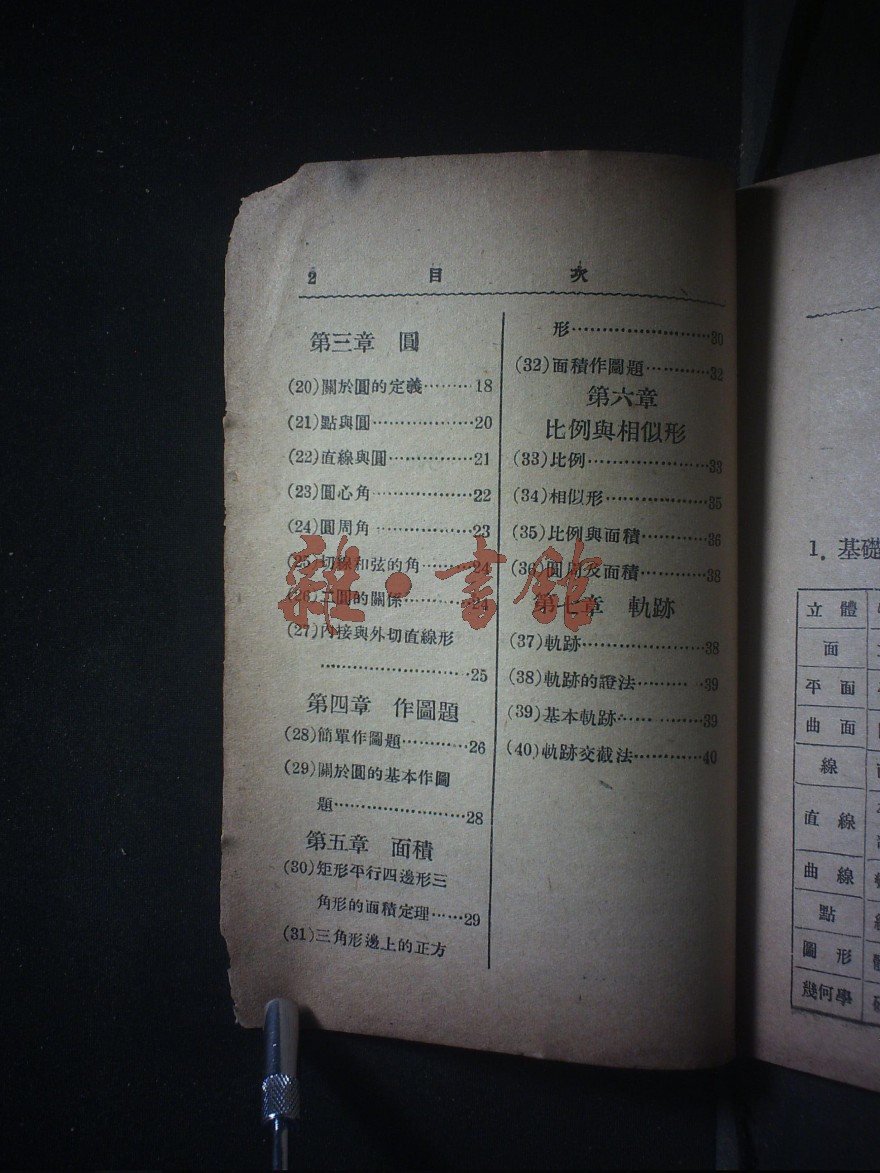 2 目 次
第三章 圓
(20)關於圓的定義………18
(21)點與圓………………20
(22)直線與圓……………21
(23)圓心角………………22
(24)圓周角………………23
(25)切線和弦的角………24
(26)二圓的關係…………24
(27)內接與外切直線形
……………………25
第四章 作圖題
(28)簡單作圖題…………26
(29)關於圓的基本作圖
題…………………28
第五章 面積
(30)矩形平行四邊形三
角形的面積定理……29
(31)三角形邊上的正方
形……………………30
(32)面積作圖題…………32
第六章
比例與相似形
(33)比例…………………33
(34)相似形………………35
(35)比例與面積…………36
(36)圓周及面積…………38
第七章 軌跡
(37)軌跡…………………38
(38)軌跡的證法…………39
(39)基本軌跡……………39
(40)軌跡交截法…………40
雜·書館
1. 基礎
立體
面
平面
曲面
線
直線
曲線
點
圖形
幾何學